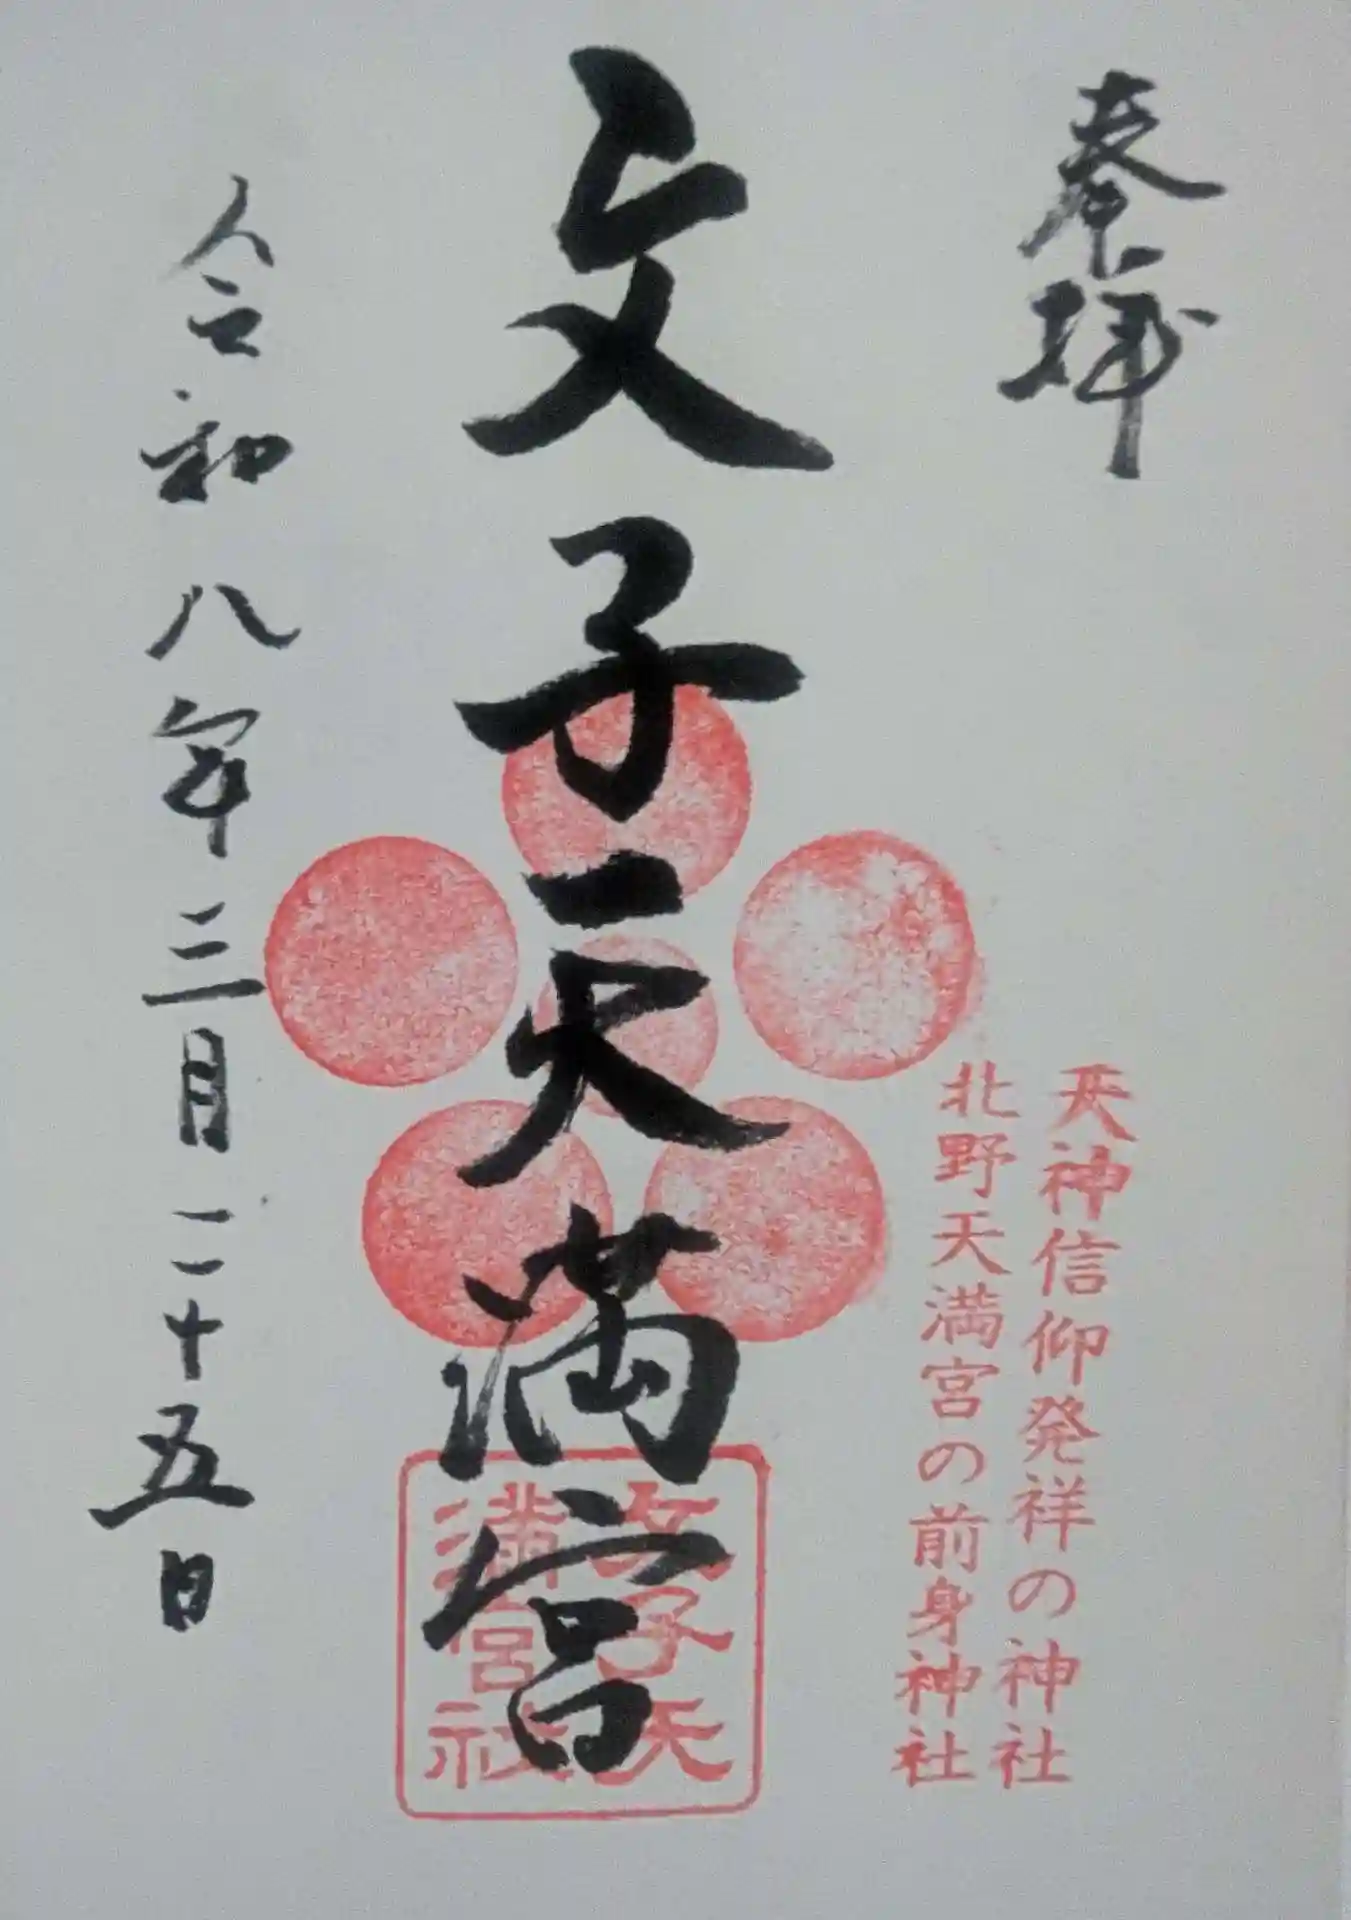 奉拝
天神信仰発祥の神社
北野天満宮の前身神社
文子天満宮
文子天
満宮社
令和八年三月二十五日